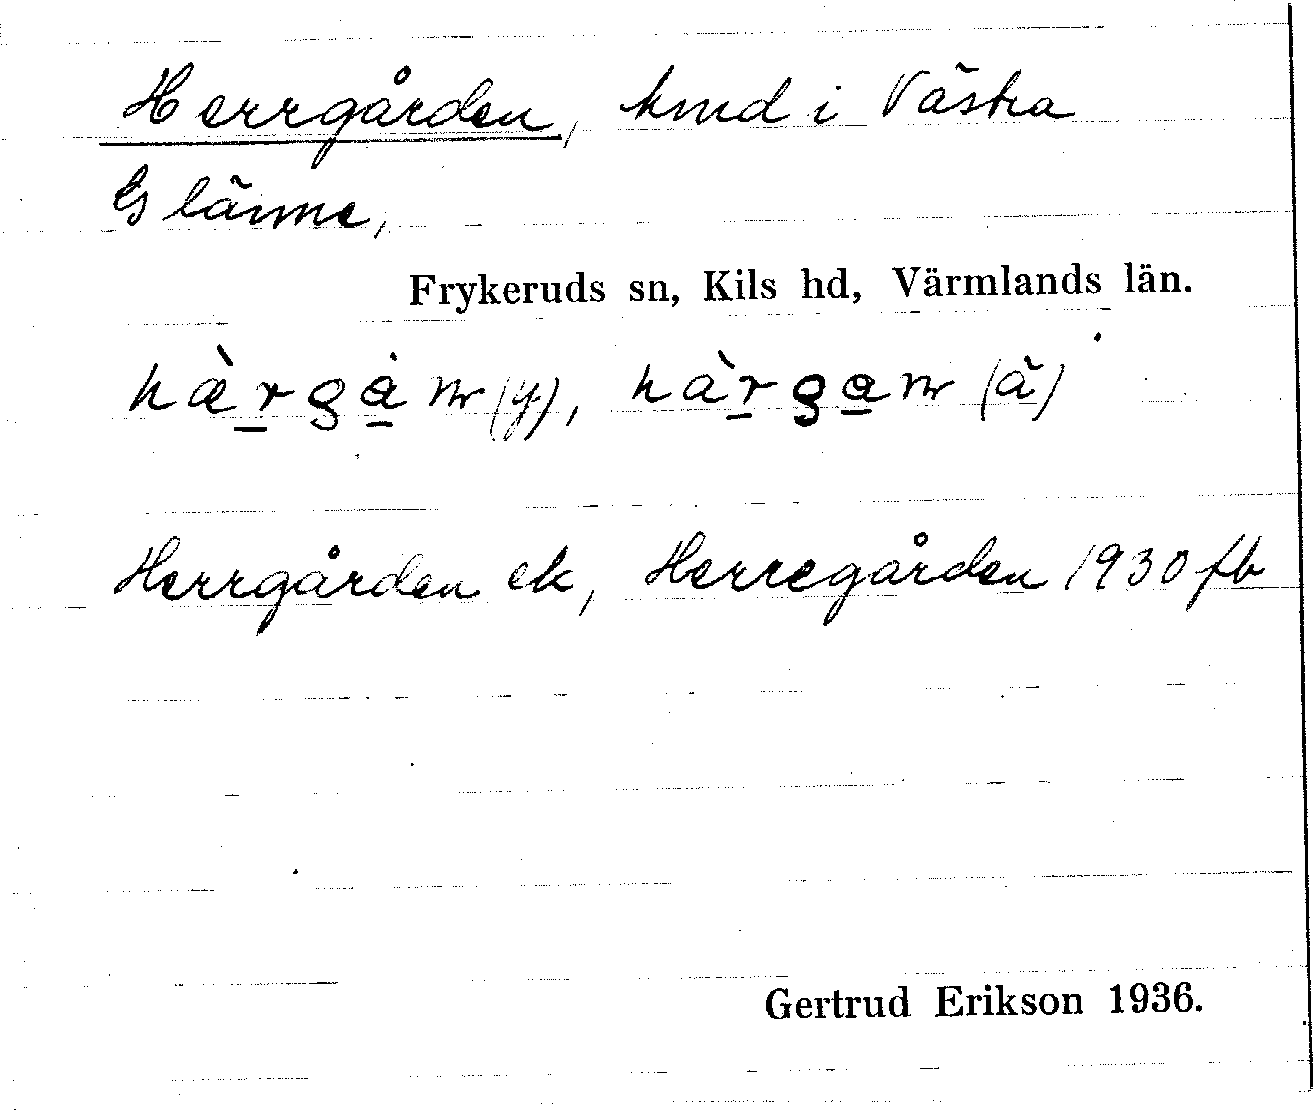 Herrgården, hmd i Västra
Glänne,
Frykeruds sn, Kils hd, Värmlands län.
hæ̀r̲gå̲̀nr (y), hàr̲ga̲nr (ä)
Herrgården ek, Herregården 1930 fb
Gertrud Erikson 1936.